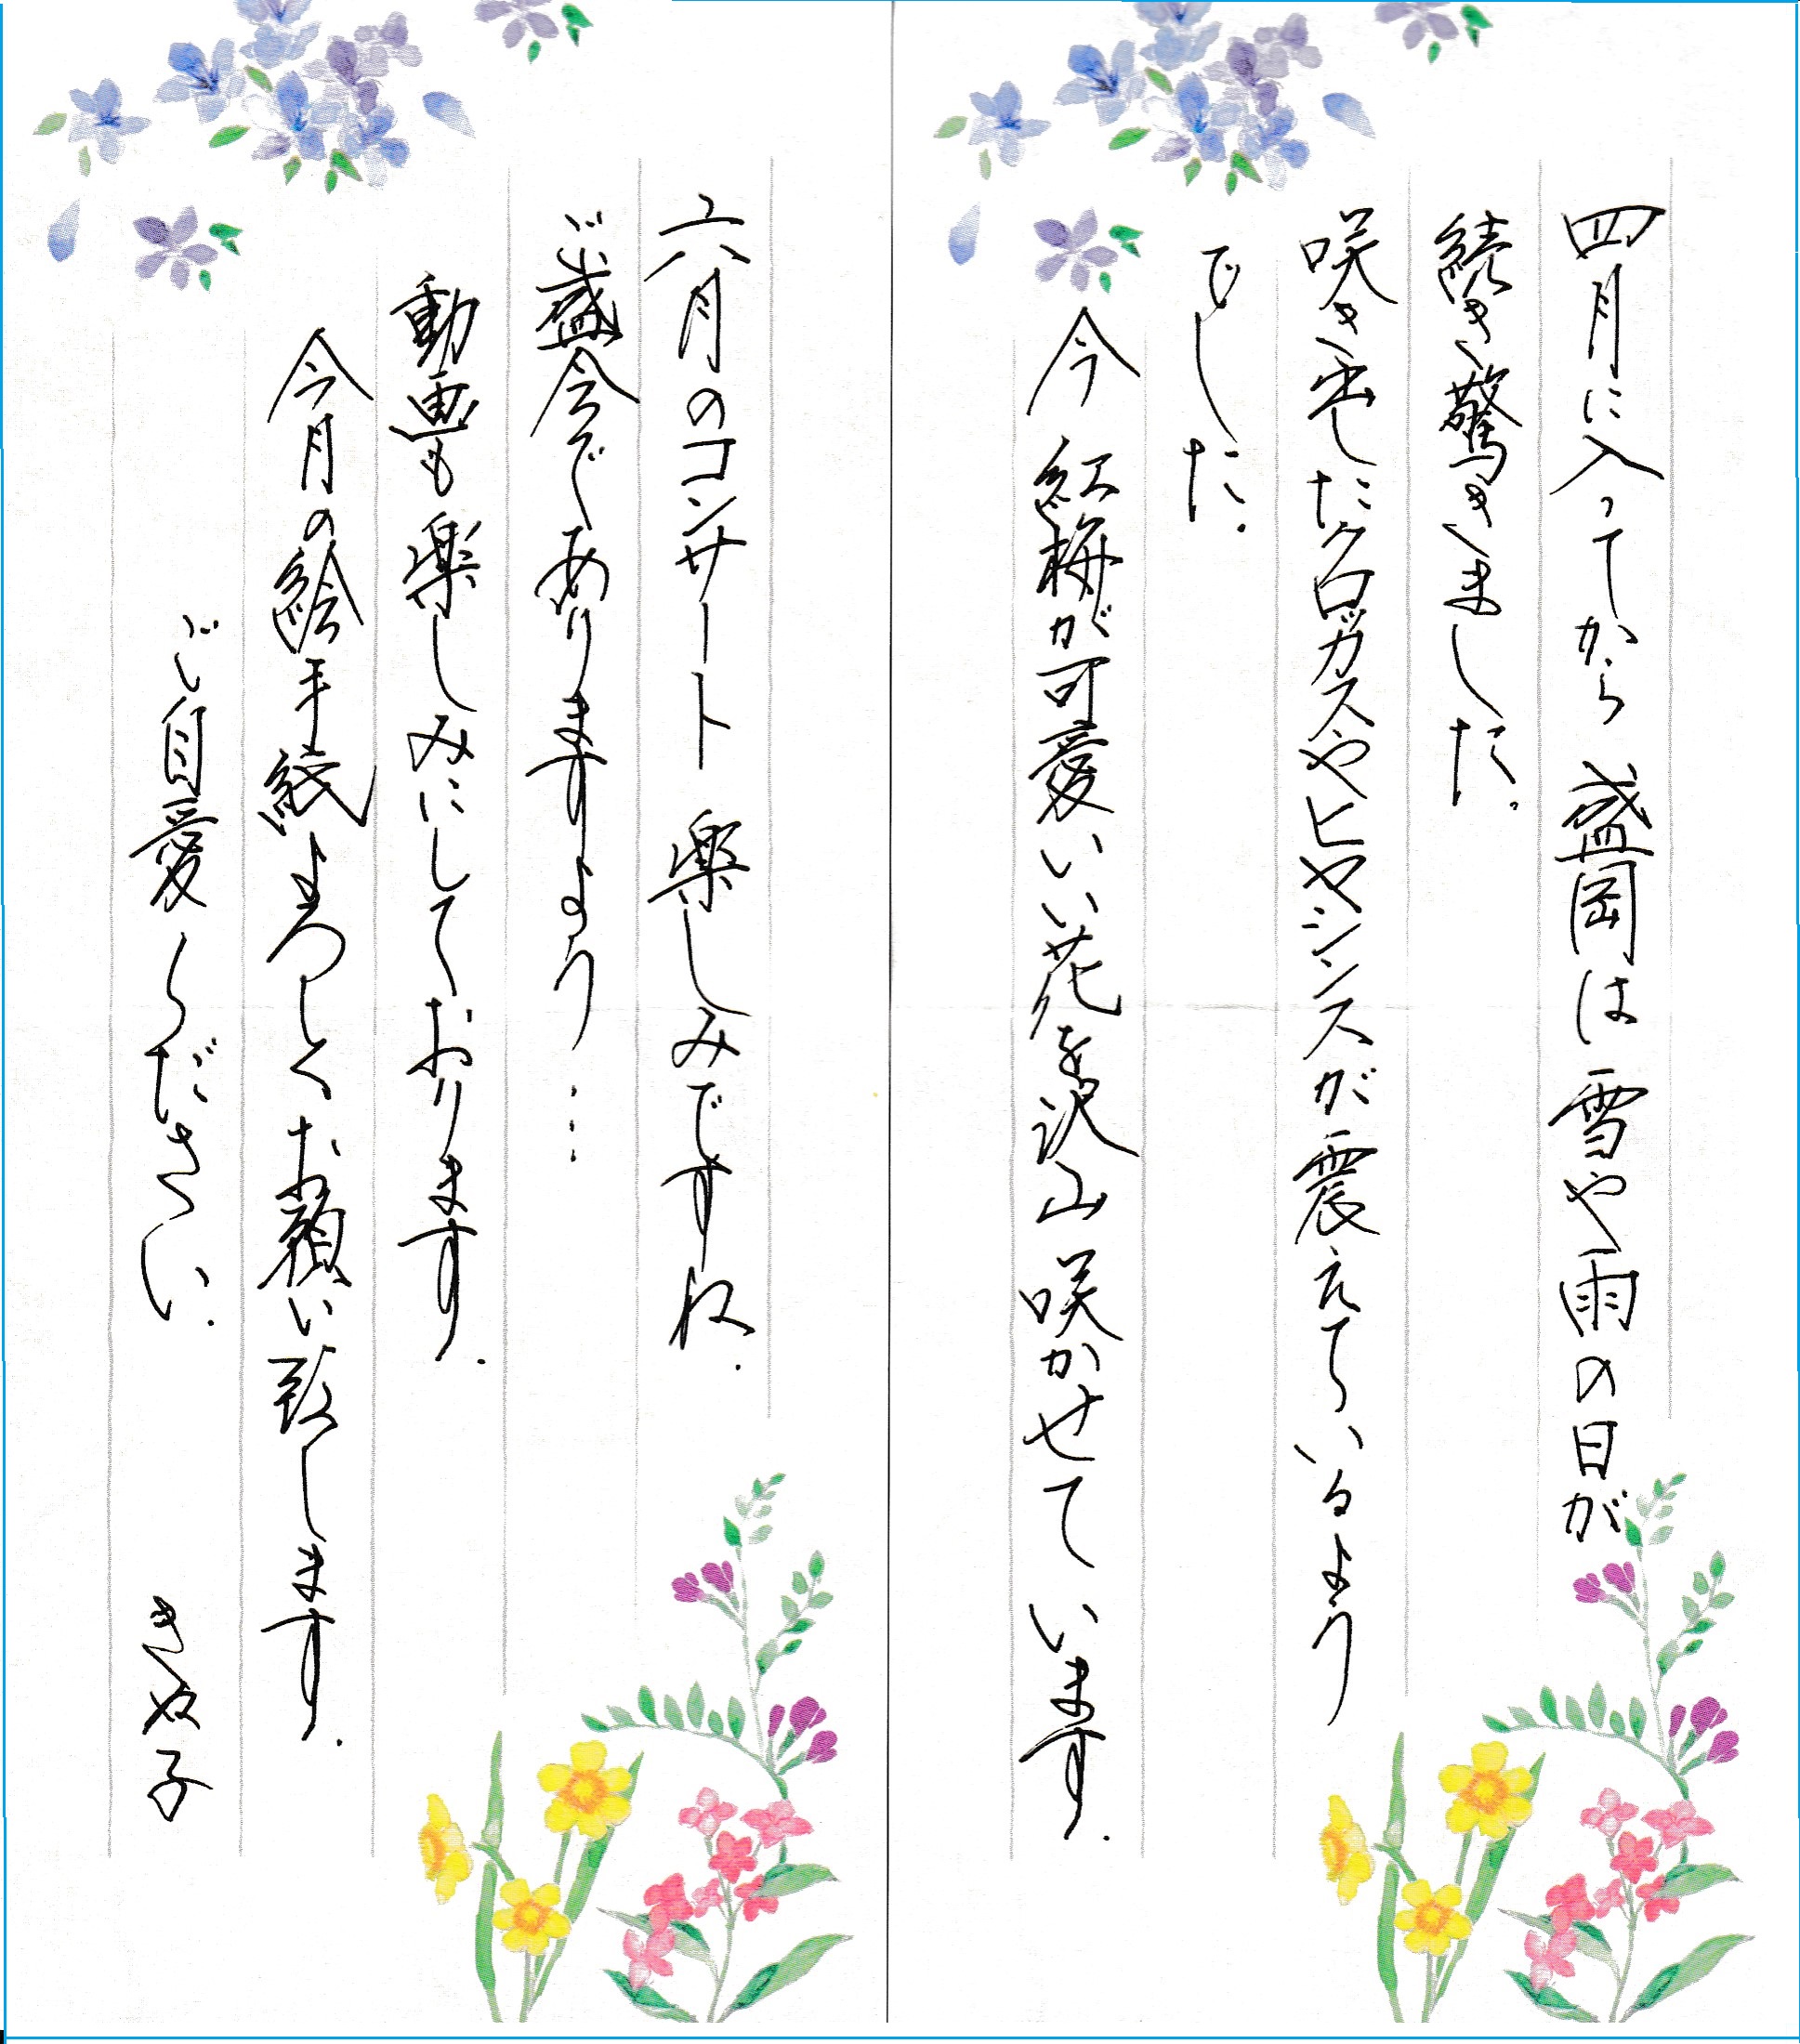 四月に入ってから 盛岡は 雪や雨の日が
続き驚きました.
咲き出したクロッカスやヒヤシンスが震えているよう
でした.
今 紅梅が可愛いい花を沢山咲かせています.
六月のコンサート 楽しみですね.
ご盛会でありますよう……
動画も楽しみにしております.
今月の絵手紙よろしくお願い致します.
ご自愛ください.
きぬ子